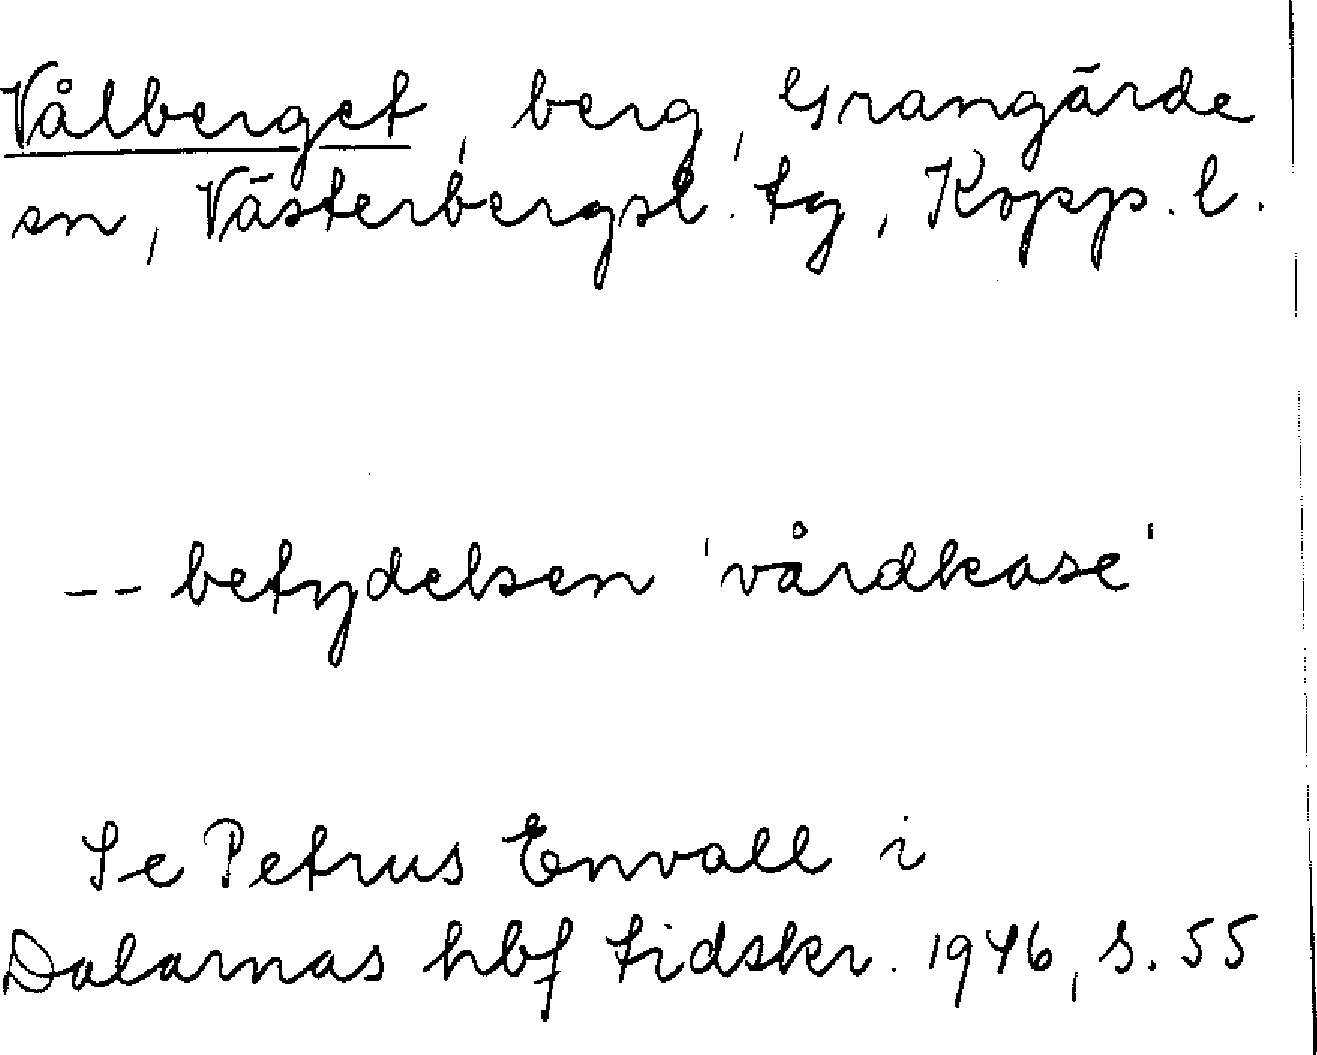 Vålberget, berg, Grangärde
sn, Västerbergsl. tg, Kopp. l.
-- betydelsen 'vårdkase'
Se Petrus Envall i
Dalarnas hbf tidskr. 1946, s. 55